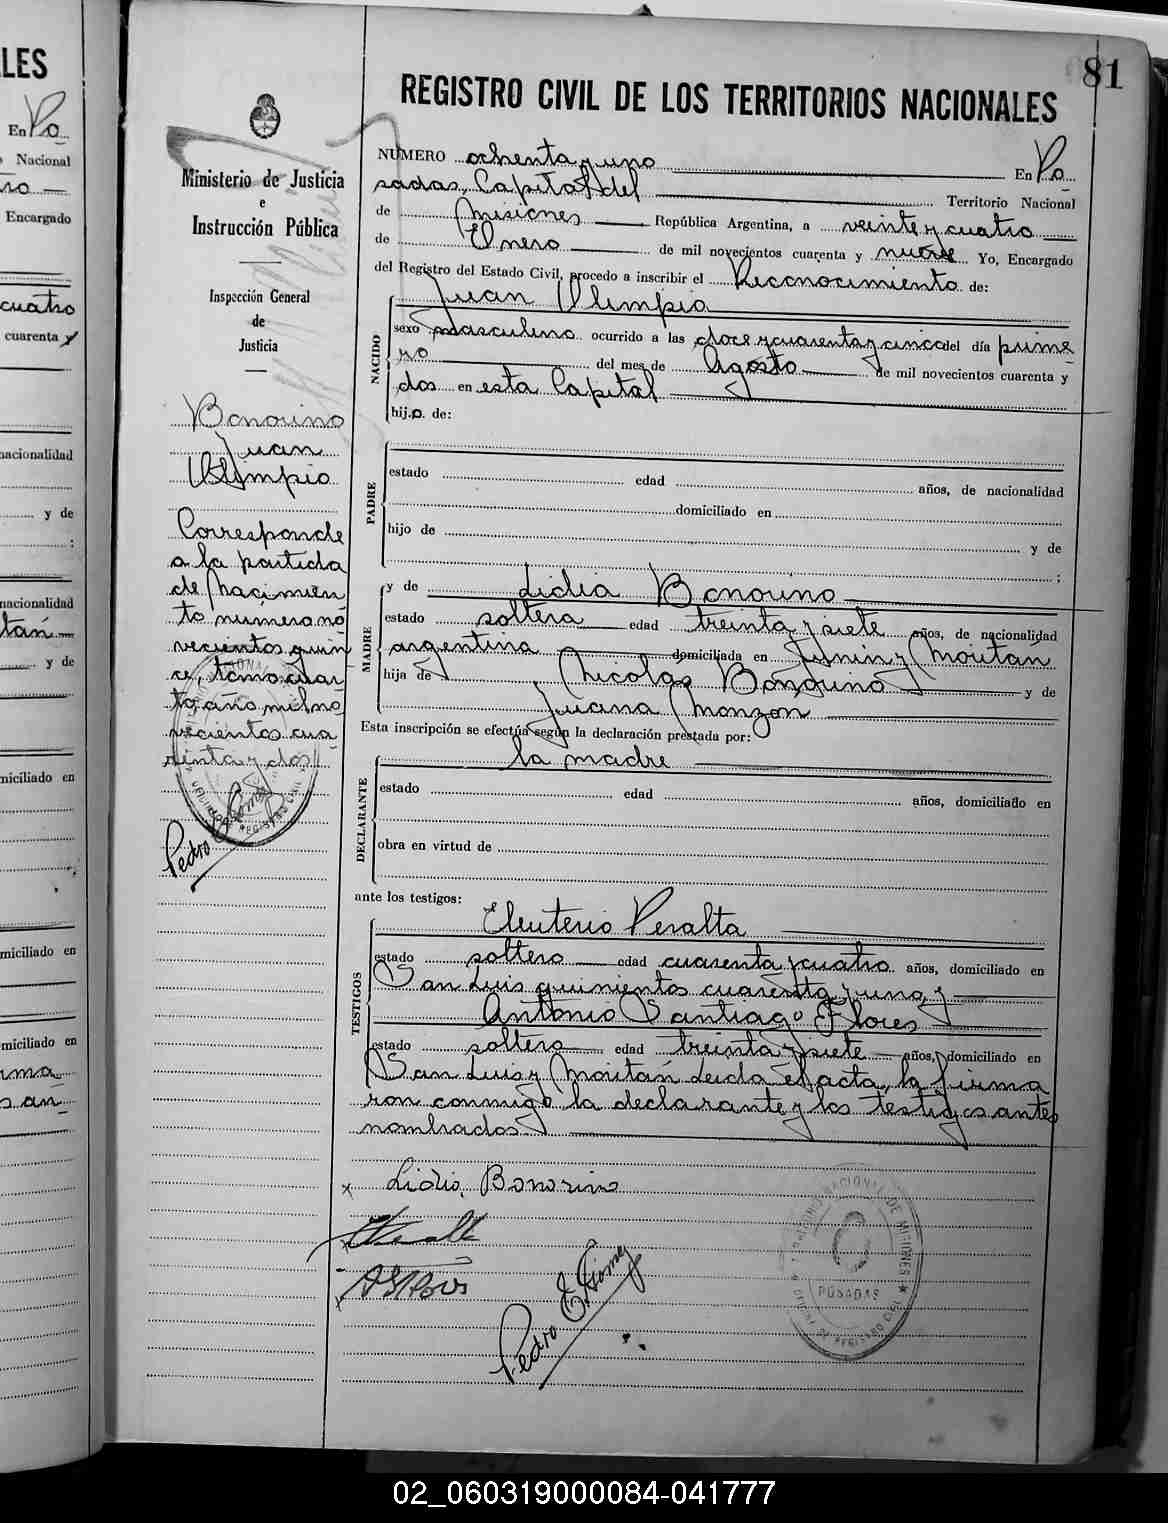 LES
En Po
Nacional
ro
Encargado
cuatro
cuarenta y
nacionalidad
y de
:
nacionalidad
tán
y de
miciliado en
miciliado en
miciliado en
rma
san
81
REGISTRO CIVIL DE LOS TERRITORIOS NACIONALES
Ministerio de Justicia
e
Instrucción Pública
Inspección General
de
Justicia
Bonorino
Juan
Olimpio
Corresponde
a la partida
de Nacimien
to numero no
vecientos quin
ce, tomo cuar
to, año mil no
vecientos cua
renta y dos
Pedro E. Gomez
NUMERO ochenta y uno En Po
sadas, Capital del Territorio Nacional
de Misiones República Argentina, a veinte y cuatro
de Enero de mil novecientos cuarenta y nueve Yo, Encargado
del Registro del Estado Civil, procedo a inscribir el Reconocimiento de:
Juan Olimpio
NACIDO
sexo masculino ocurrido a las doce y cuarenta y cinco del día prime
ro del mes de Agosto de mil novecientos cuarenta y
dos en esta Capital
hijo de:
PADRE
estado edad años, de nacionalidad
domiciliado en
hijo de y de
:
MADRE
y de Lidia Bonorino
estado soltera edad treinta y siete años, de nacionalidad
argentina domiciliada en Junin y Moritán
hija de Nicolas Bonorino y de
Juana Monzon
Esta inscripción se efectúa según la declaración prestada por:
la madre
DECLARANTE
estado edad años, domiciliado en
obra en virtud de
ante los testigos:
TESTIGOS
Eleuterio Peralta
estado soltero edad cuarenta y cuatro años, domiciliado en
San Luis quinientos cuarenta y uno, y
Antonio Santiago Flores
estado soltero edad treinta y siete años, domiciliado en
San Luis y Moritán Leida el acta, la firma
ron conmigo la declarante y los testigos antes
nombrados.
x Lidia Bonorino
Pedro E. Gomez
TERRITORIO NACIONAL DE MISIONES
POSADAS
OFICINA DE REGISTRO CIVIL
02_060319000084-041777